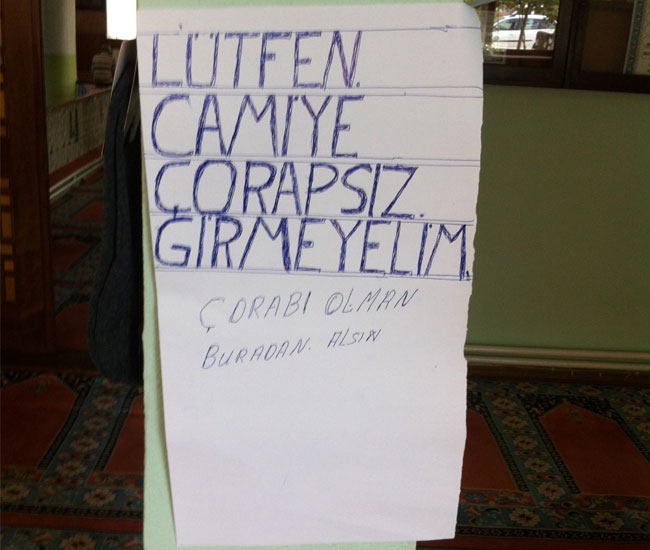 LÜTFEN.
CAMİYE
ÇORAPSIZ.
GİRMEYELİM.
ÇORABI OLMAN
BURADAN. ALSIN